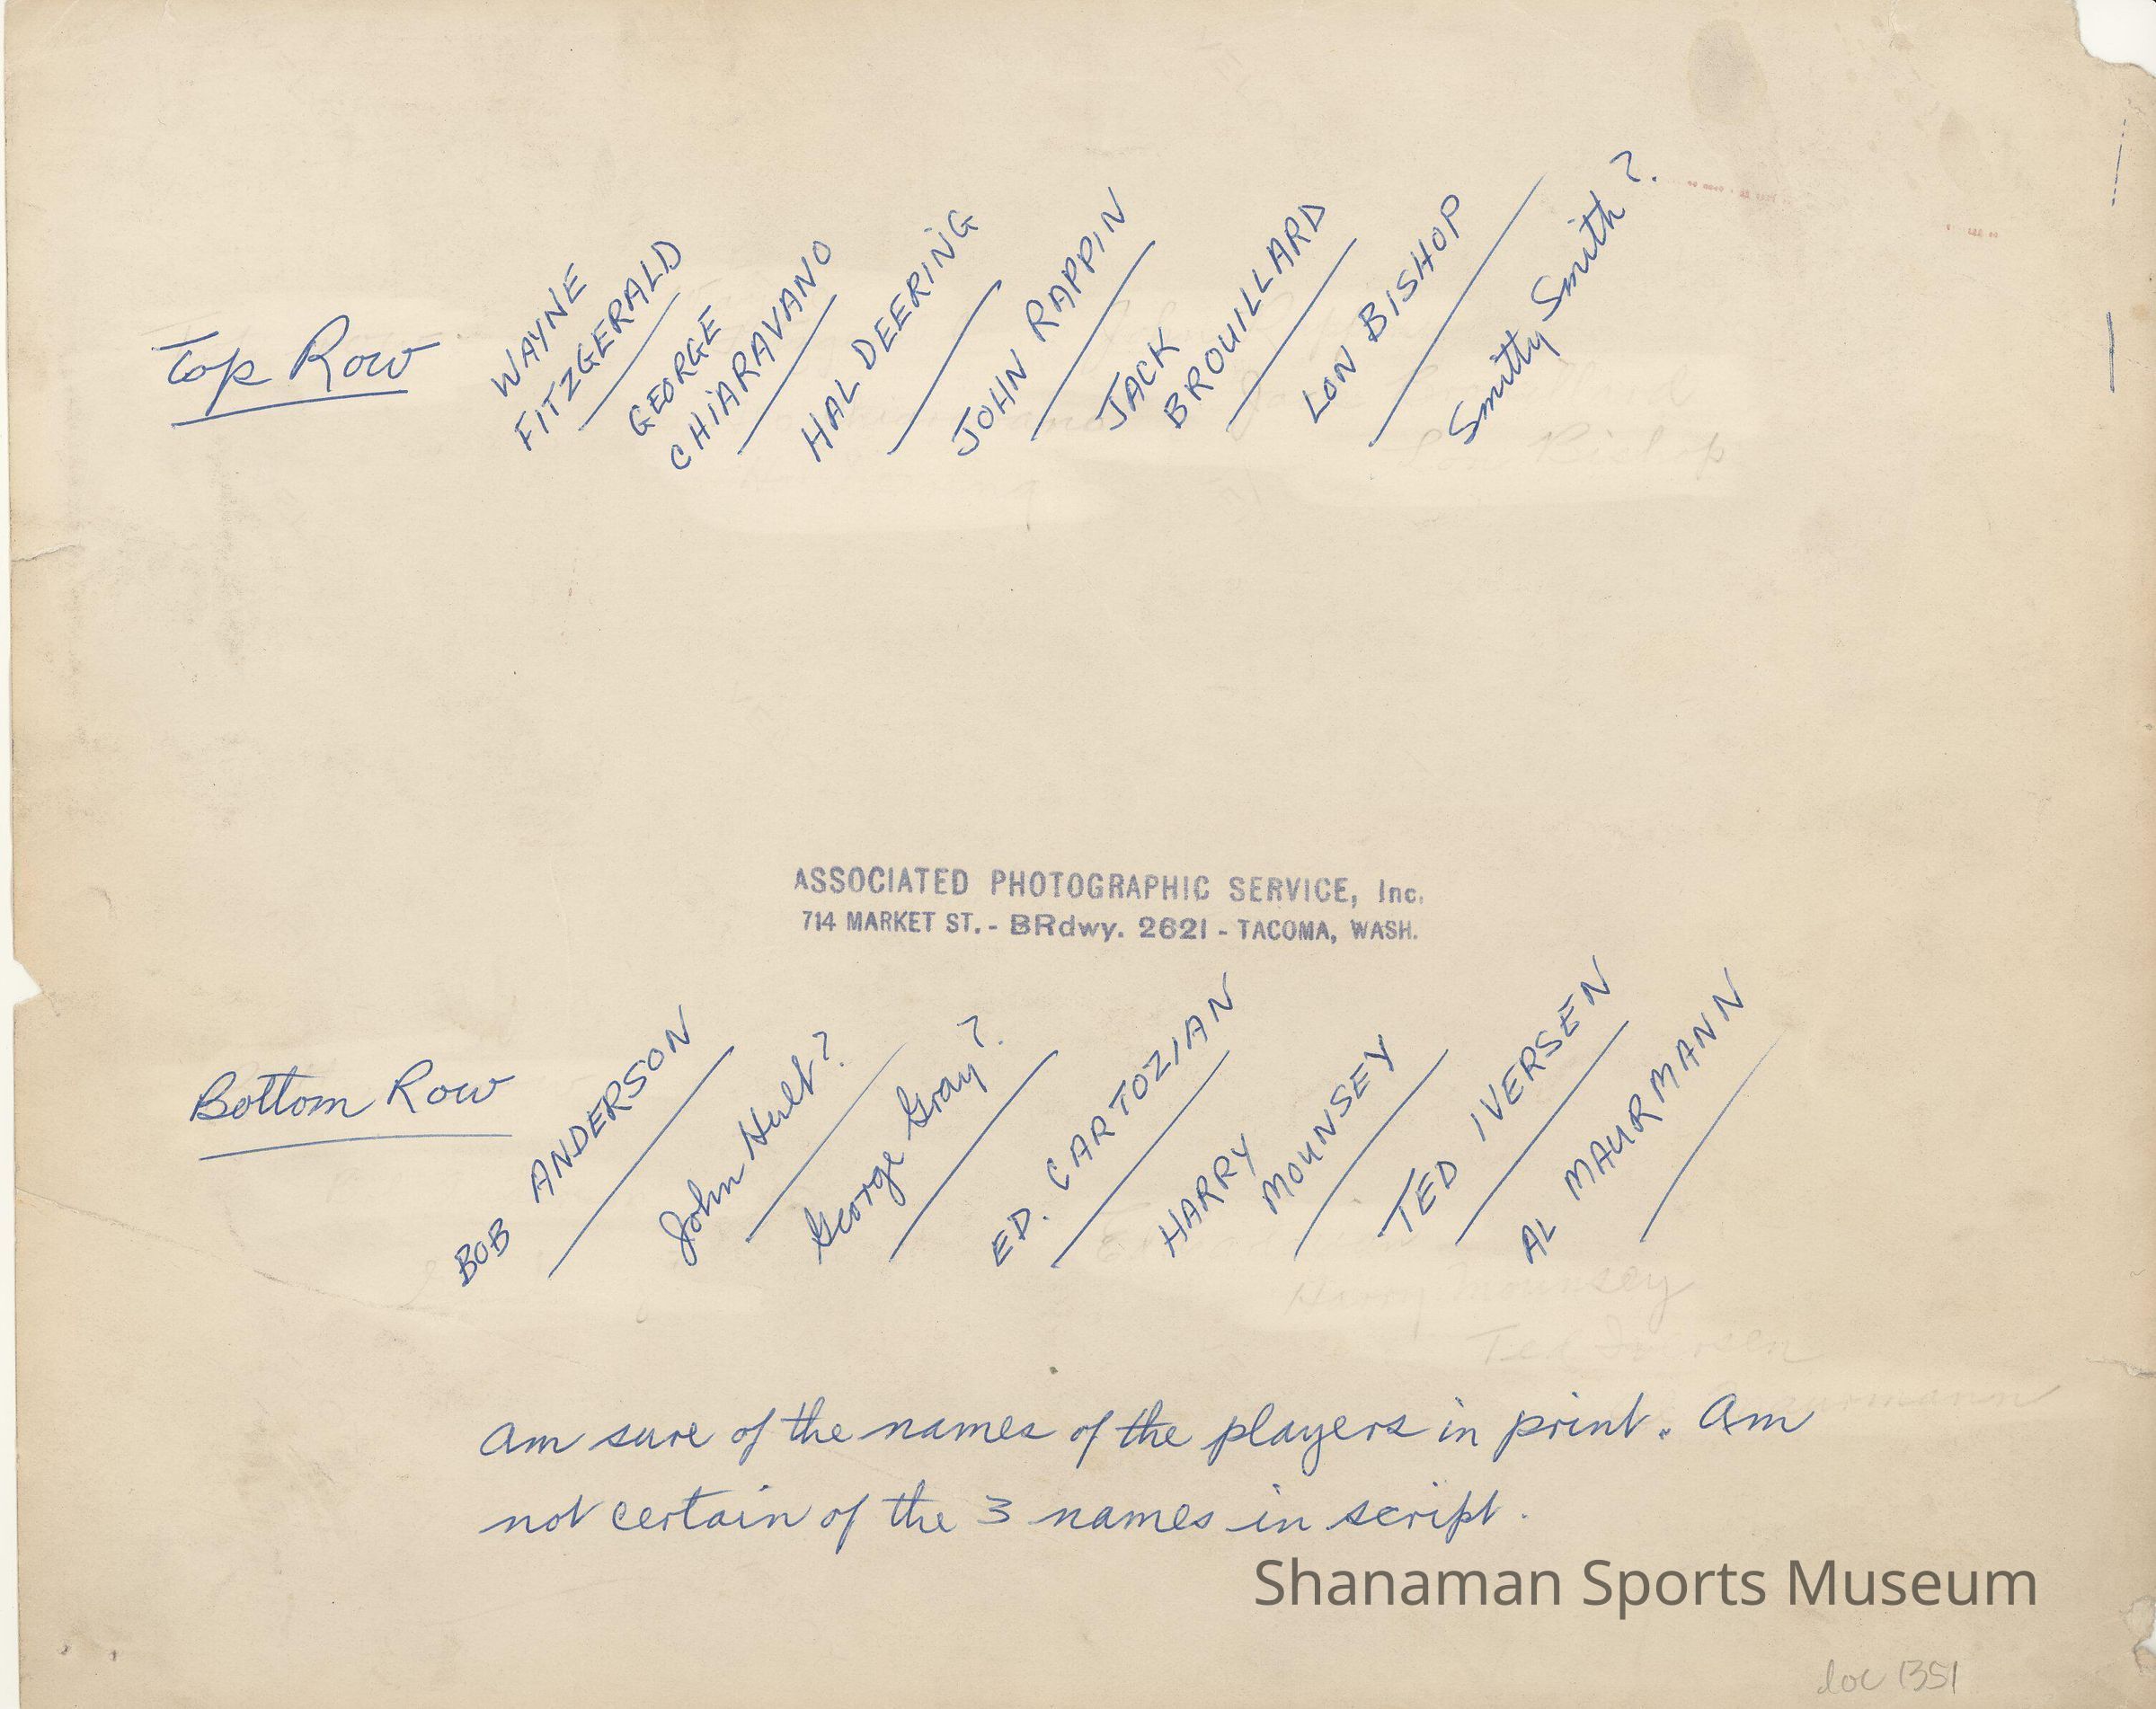 Top Row
WAYNE
FITZGERALD
GEORGE
CHIARAVANO
HAL DEERING
JOHN RAPPIN
JACK
BROUILLARD
LON BISHOP
Smitty Smith ?.
ASSOCIATED PHOTOGRAPHIC SERVICE, Inc.
714 MARKET ST. - BRdwy. 2621 - TACOMA, WASH.
Bottom Row
BOB ANDERSON
John Hult?
George Gray?
ED. CARTOZIAN
HARRY
MOUNSEY
TED IVERSEN
AL MAURMANN
Lon Bishop
Harry Mounsey
Ted Iversen
Am sure of the names of the players in print. Am
not certain of the 3 names in script.
Shanaman Sports Museum
doc 1351